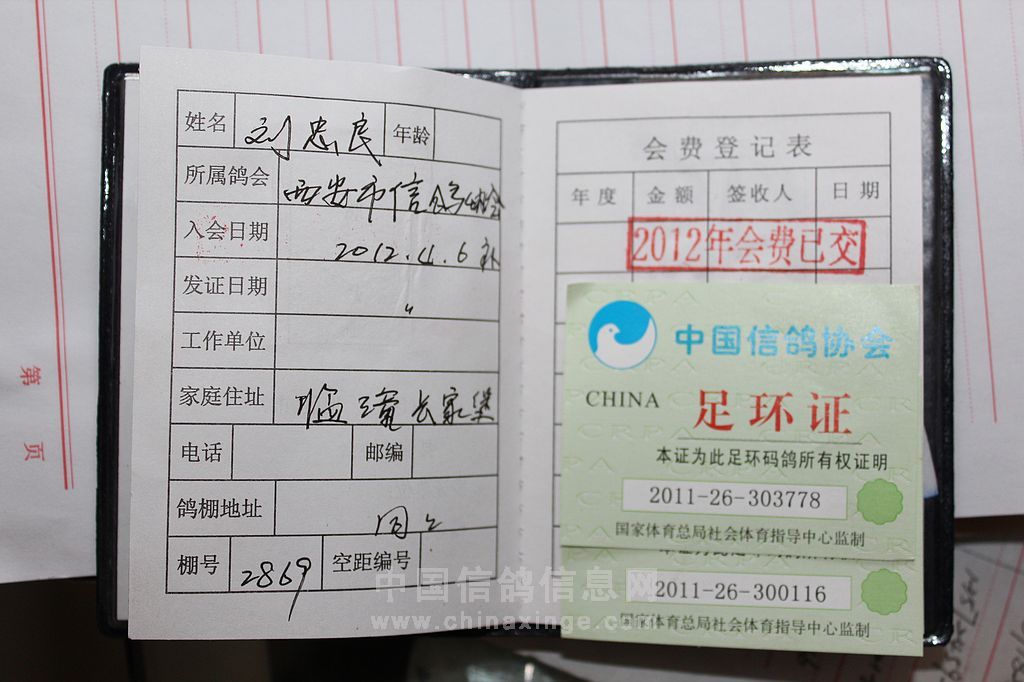 姓名 刘忠良 年龄
所属鸽会 西安市信鸽协会
入会日期 2012.11.6 补
发证日期 〃
工作单位
家庭住址 临潼长家堡
电话 邮编
鸽棚地址 同上
棚号 2869 空距编号
会费登记表
年度 金额 签收人 日期
2012年会费已交
中国信鸽协会
CHINA 足环证
本证为此足环码鸽所有权证明
2011-26-303778
国家体育总局社会体育指导中心监制
2011-26-300116
国家体育总局社会体育指导中心监制
第 页
中国信鸽信息网
www.chinaxinge.com